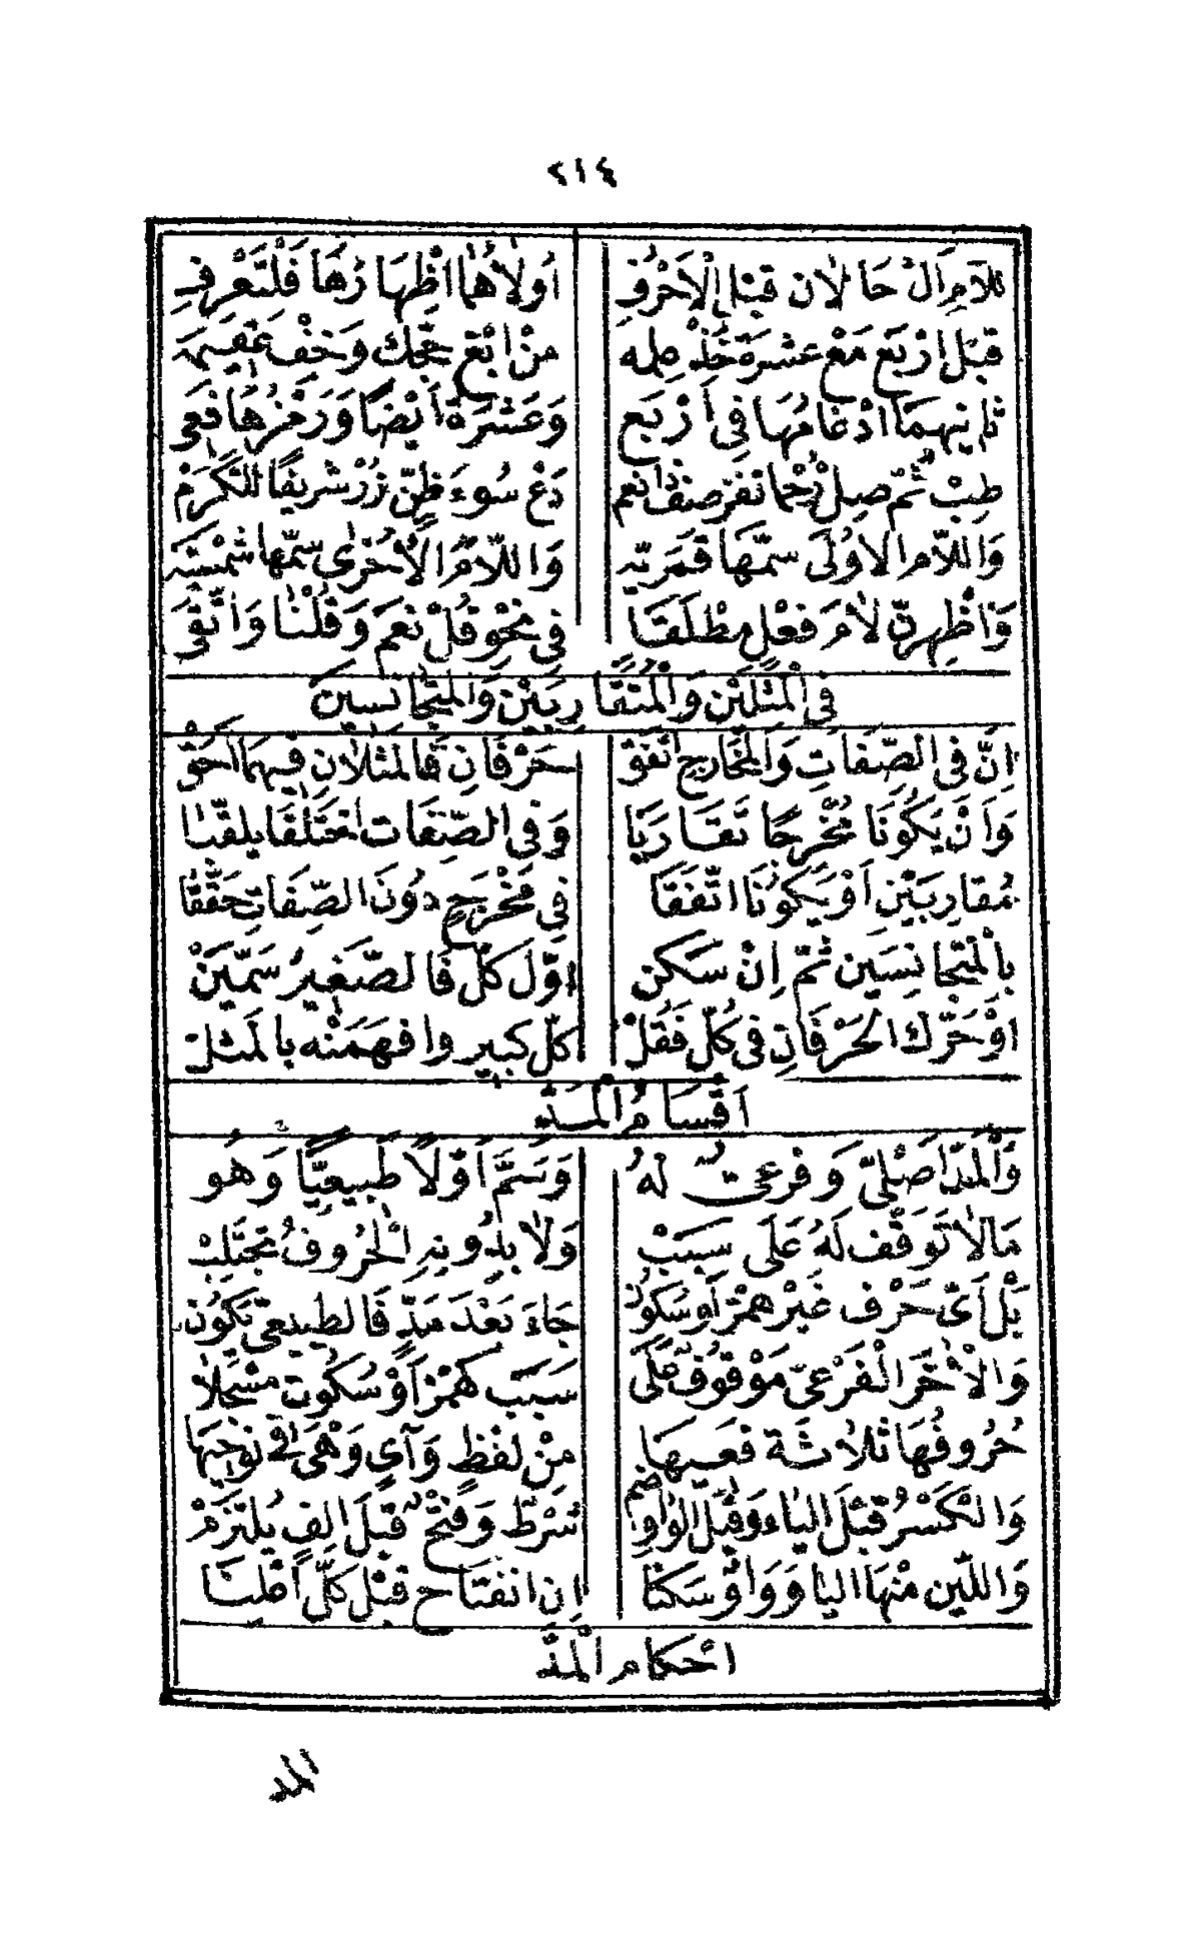 ٢١٤
للامِ ال حالان قبل الأحرف اولاهما اظهارها فلتعرف
قبل اربع مع عشرة خذ علمه من ابغ حجك وخف عقيمه
ثانيهما ادغامها في أربع وعشرة أيضا ورمزها فع
طب ثم صل رحما تفز ضف ذا نعم دع سوء ظن زر شريفا للكرم
واللام الاولى سمها قمريه واللام الأخرى سمها شمسيه
وأظهرن لام فعل مطلقا في نحو قل نعم وقلنا والتقى
في المثلين والمتقاربين والمتجانسين
إن في الصفات والمخارج اتفق حرفان فالمثلان فيهما احق
وان يكونا مخرجا تقاربا وفي الصفات اختلفا يلقبا
مقاربين او يكونا اتفقا في مخرج دون الصفات حققا
بالمتجانسين ثم إن سكن اول كل فالصغير سمين
او حرك الحرفان في كل فقل كل كبير وافهمنه بالمثل
اقسام المد
والمد اصلي وفرعي له وسم أولا طبيعيا وهو
مالا توقف له على سبب ولا بدونه الحروف تجتلب
بل أي حرف غير همز أو سكون جاء بعد مد فالطبيعي يكون
والأخر الفرعي موقوف على سبب كهمز أو سكون مسجلا
حروفها ثلاثة فعيها من لفظ واي وهي في نوحيها
والكسر قبل الياء وقبل الواو ضم شرط وفتح قبل الف يلتزم
واللين منها اليا وواو سكنا ان انفتاح قبل كل أعلنا
احكام المد
المد